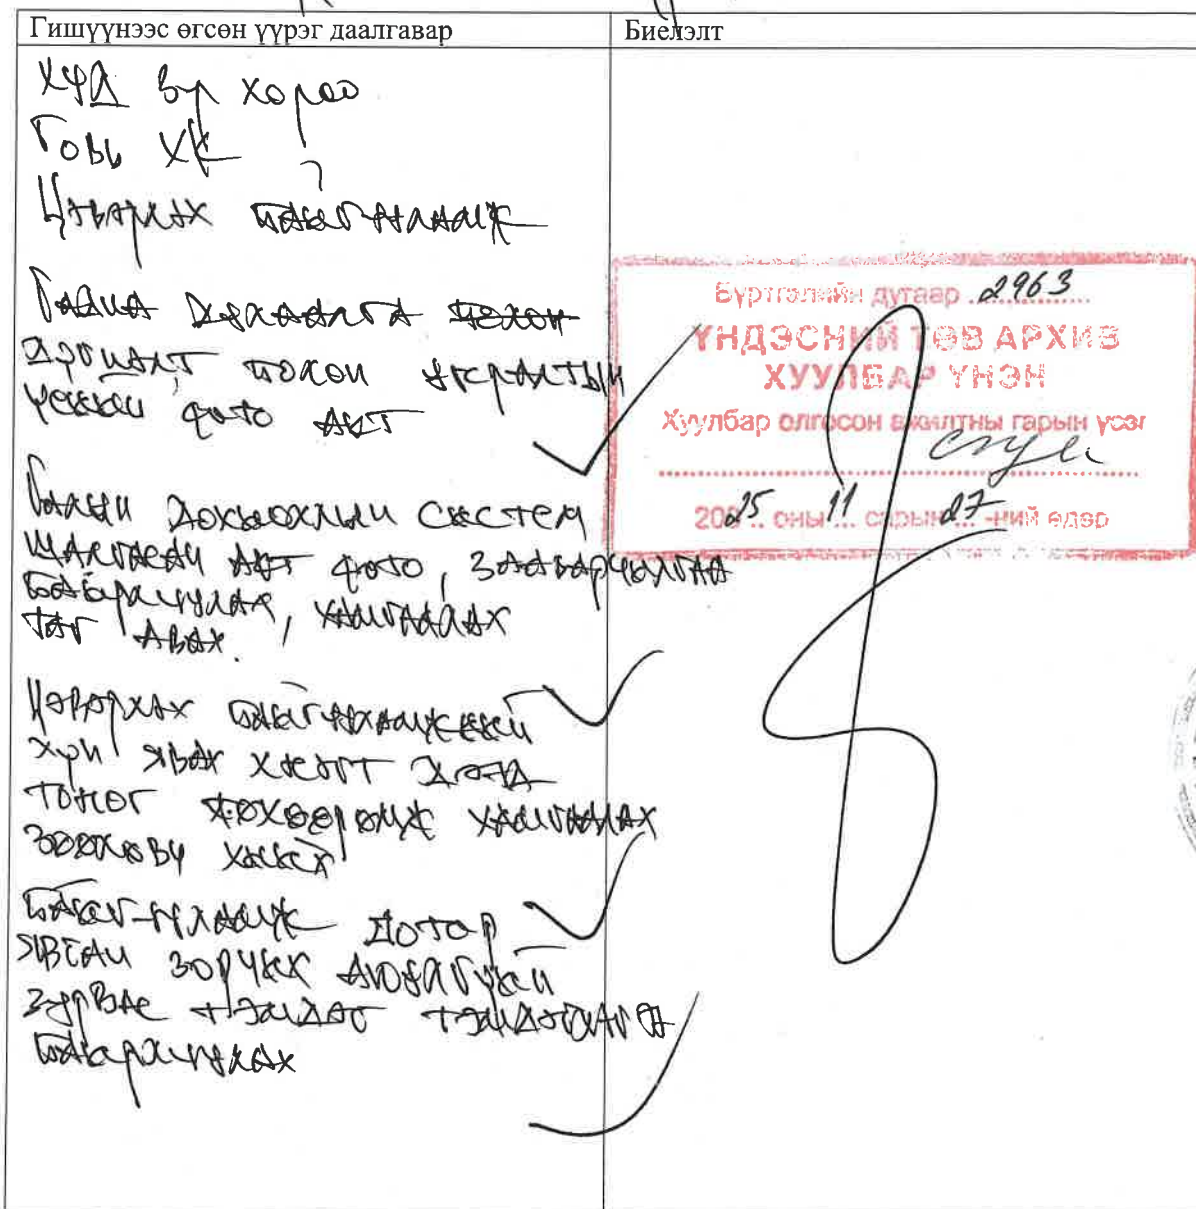 Гишүүнээс өгсөн үүрэг даалгавар
Биелэлт
ХУД 3р хороо
Говь ХК
Цэвэрлэх байгууламж
Гадна дулаалга
зохион угсралтын
фото акт
Галын дохиоллын систем
шалгасан акт фото, зааварчилгаа
байрлуулах, хамгаалах
таг авах.
Цэвэрлэх байгууламжийн
хүн явах хэсэгт
тоног төхөөрөмж хамгаалах
зөөлөвч хийх
Байгууламж дотор
явсан зорчих аюулгүй
зурвас тэмдэг тэмдэглэгээ
байрлуулах
Бүртгэлийн дугаар 2963
ҮНДЭСНИЙ ТӨВ АРХИВ
ХУУЛБАР ҮНЭН
Хуулбар олгосон ажилтны гарын үсэг
2025 оны 11 сарын 27-ний өдөр